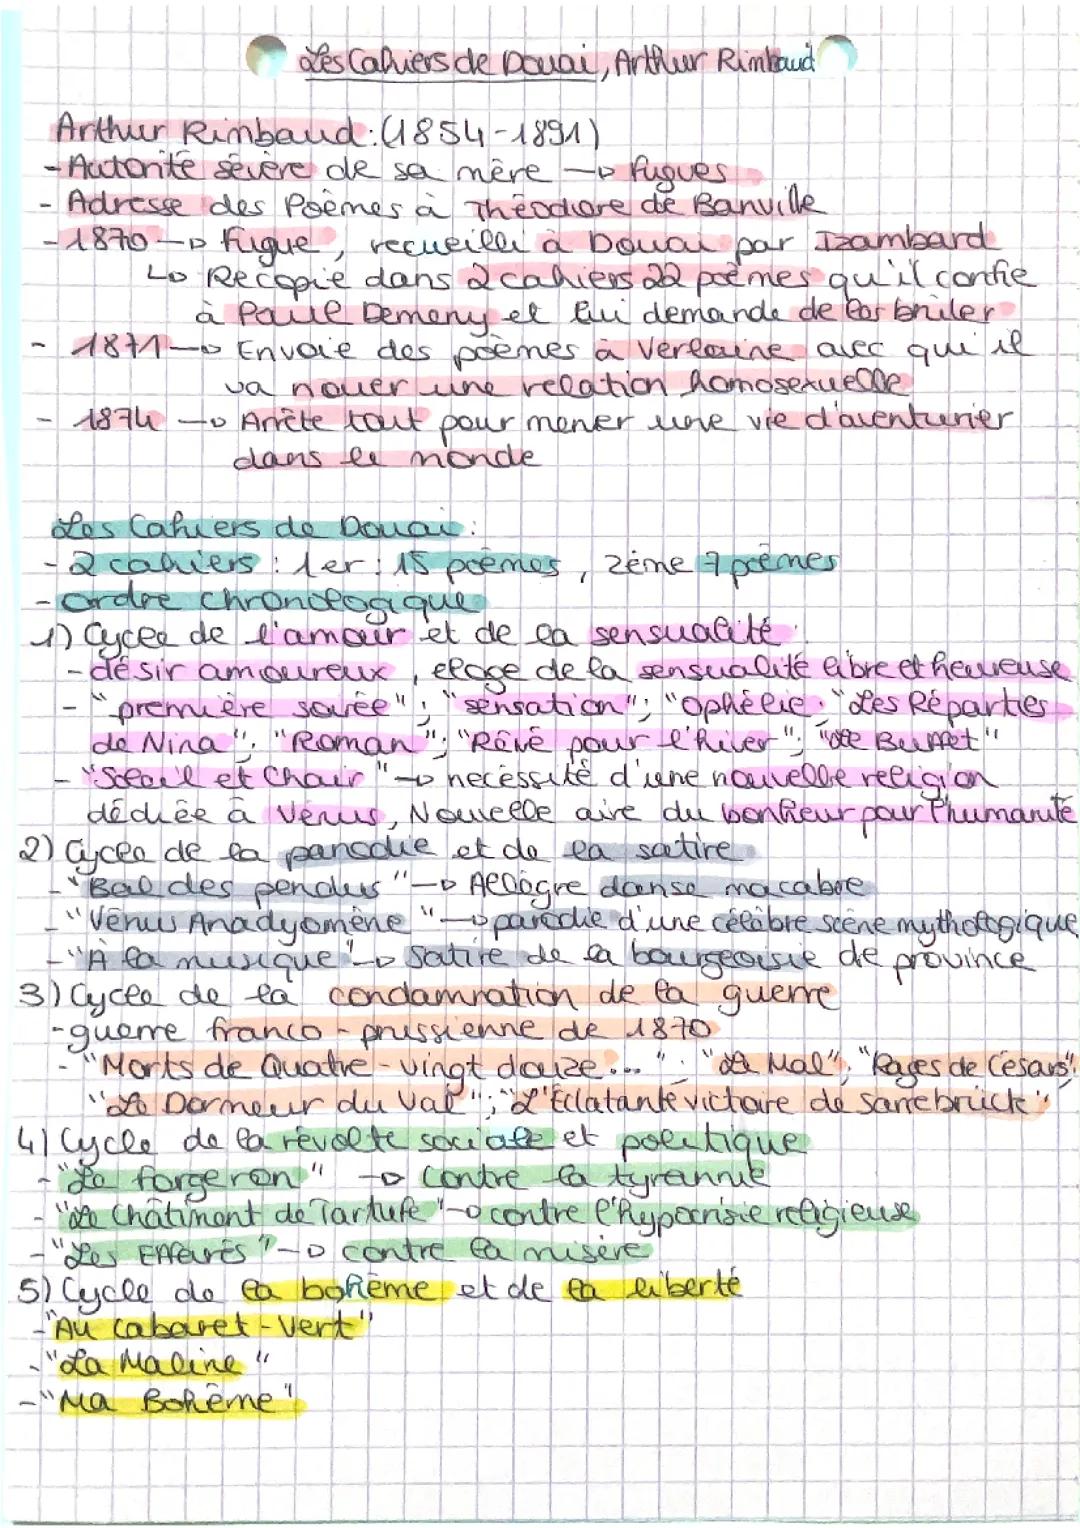 Les Cahiers de Douai, Arthur Rimbaud
Arthur Rimbaud : (1854-1891)
- Autorité sévère de sa mère → fugues
- Adresse des Poèmes à Théodore de Banville
- 1870 → Fugue, recueilli à Douai par Izambard
↳ Recopie dans 2 cahiers 22 poèmes qu'il confie
à Paul Demeny et lui demande de les brûler
- 1871 → Envoie des poèmes à Verlaine avec qui il
va nouer une relation homosexuelle
- 1874 → Arrête tout pour mener une vie d'aventurier
dans le monde
Les Cahiers de Douai :
- 2 cahiers : 1er : 15 poèmes, 2ème 7 poèmes
- ordre chronologique
1) Cycle de l'amour et de la sensualité
- désir amoureux, eloge de la sensualité libre et heureuse
- "première soirée"; "sensation"; "Ophélie; "Les Réparties
de Nina"; "Roman"; "Rêvé pour l'hiver"; "Le Buffet"
- "Soleil et Chair" → necessité d'une nouvelle religion
dédiée à Vénus, Nouvelle aire du bonheur pour l'humanité
2) Cycle de la parodie et de la satire
- "Bal des pendus" → Allègre danse macabre
- "Vénus Anadyomène" → parodie d'une célèbre scène mythologique
- "À la musique" → satire de la bourgeoisie de province
3) Cycle de la condamnation de la guerre
- guerre franco-prussienne de 1870
- "Morts de Quatre-vingt douze..."; "Le Mal"; "Rages de Césars";
"Le Dormeur du Val"; "L'Eclatante victoire de Sarrebrück"
4) Cycle de la révolte sociale et politique
- "Le forgeron" → contre la tyrannie
- "Le Châtiment de Tartufe" → contre l'hypocrisie religieuse
- "Les Effarés" → contre la misère
5) Cycle de la bohème et de la liberté
- "Au cabaret-Vert"
- "La Maline"
- "Ma Bohème"